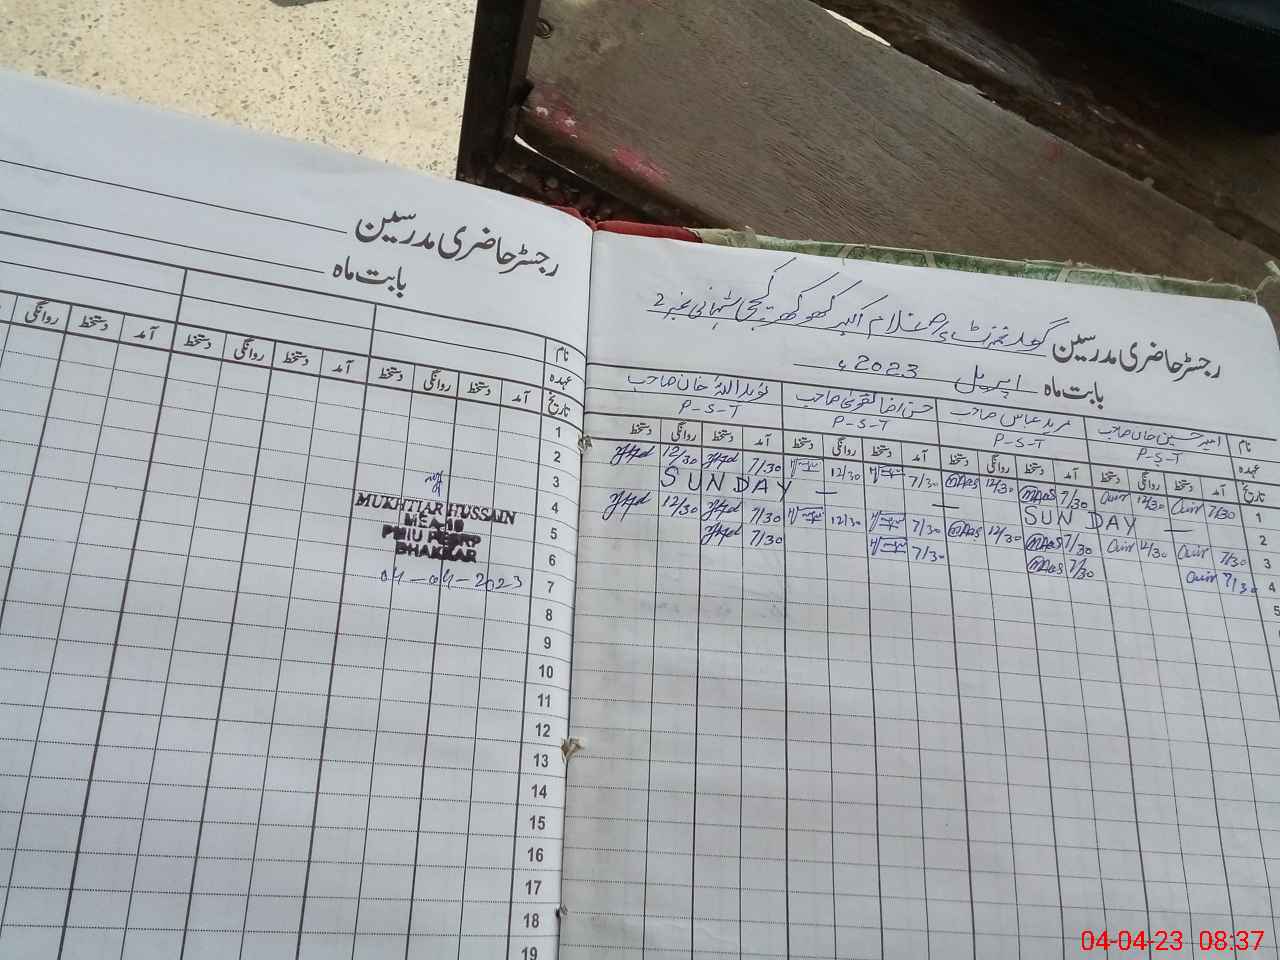 رجسٹر حاضری مدرسین
بابت ماہ
نام
عہدہ
تاریخ
آمد دستخط روانگی دستخط آمد دستخط روانگی دستخط آمد دستخط روانگی
1
2
3
4
5
6
7
8
9
10
11
12
13
14
15
16
17
18
19
MUKHTIAR HUSSAIN
MEA-10
PMIU PESRP
BHAKKAR
04-04-2023
رجسٹر حاضری مدرسین
بابت ماہ اپریل 2023ء
نام امیر حسین خان صاحب مرید عباس صاحب حسن رضا نقوی صاحب نوید اللہ خان صاحب
عہدہ P-S-T P-S-T P-S-T P-S-T
تاریخ آمد دستخط روانگی دستخط آمد دستخط روانگی دستخط آمد دستخط روانگی دستخط آمد دستخط روانگی دستخط
1 7/30 12/30 7/30 12/30 7/30 12/30 7/30 12/30
2 SUNDAY — SUNDAY —
3 7/30 12/30 7/30 12/30 7/30 12/30 7/30 12/30
4 7/30 7/30 7/30 7/30
5
04-04-23 08:37